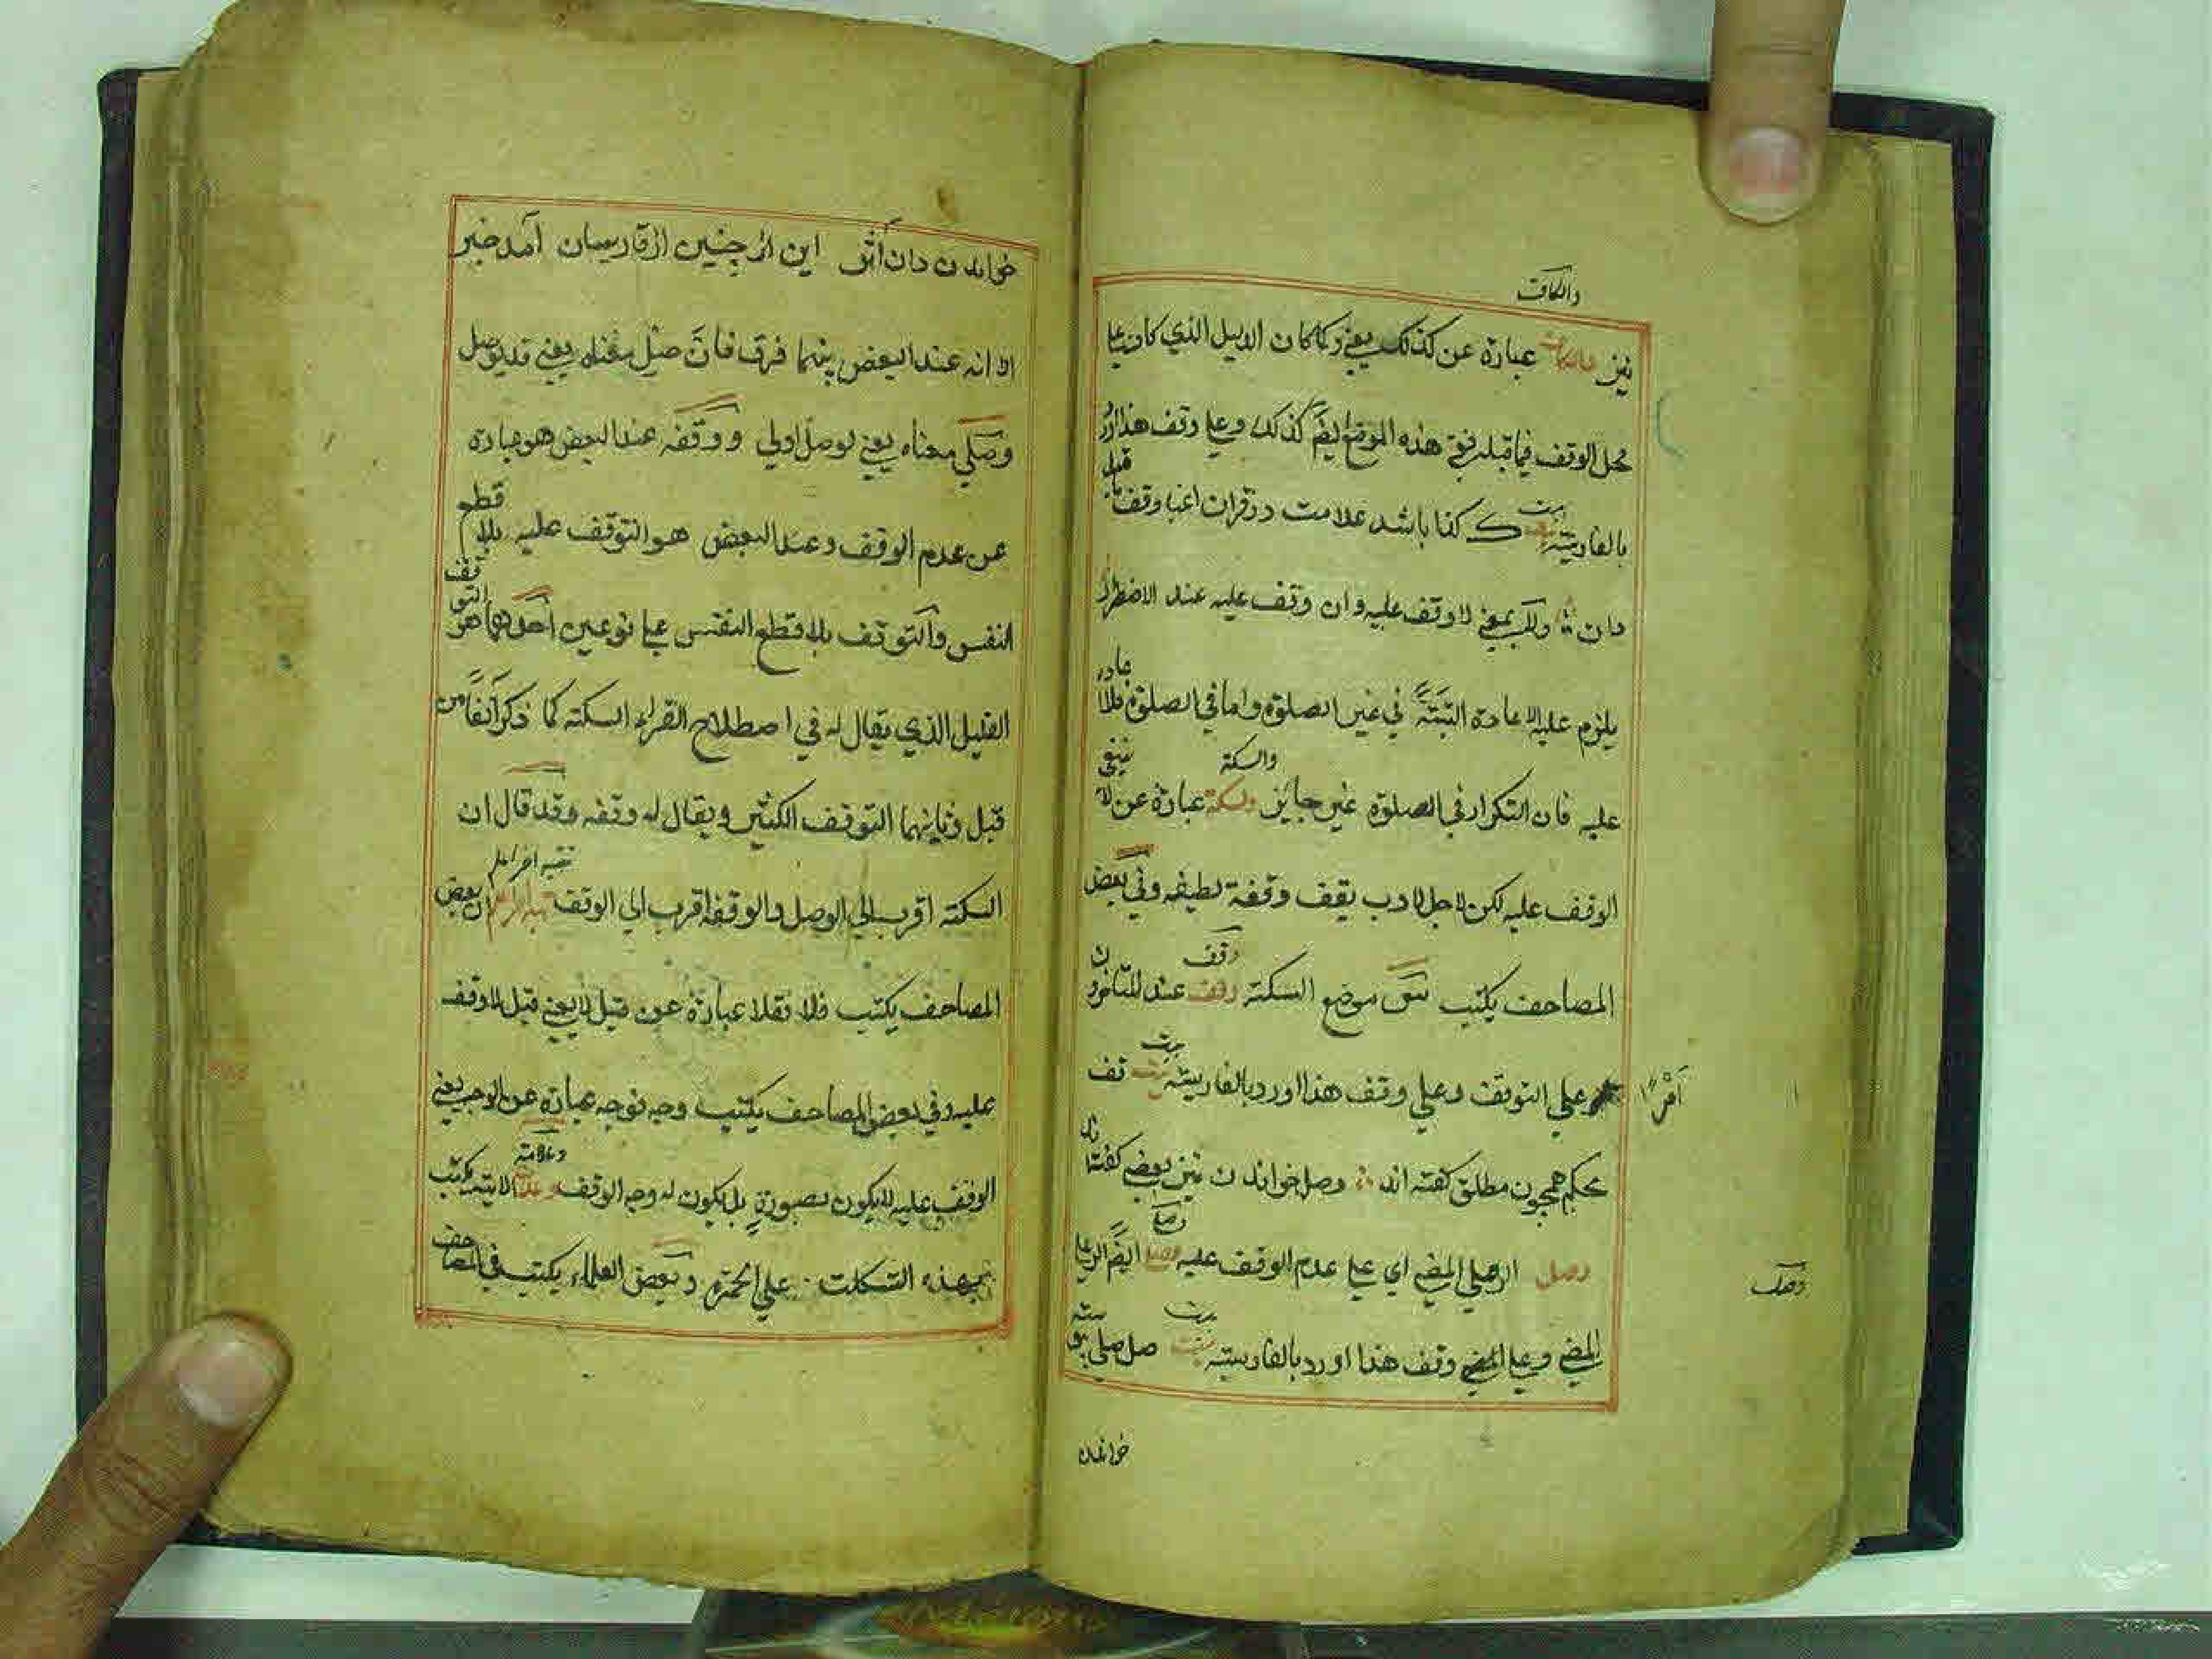 والكاف
نيز والكاف عبارة عن كذلك يعني كما كان الدليل الذي كان على
محل الوقف فيما قبله ففي هذه الموضع ايضًا كذلك وعلى وقف هذا اورد
بالفارسية بيت ك كذا باشد علامت در قران اغبا وقف ما قبل
دان ولك بمعنى لا وقف عليه وان وقف عليه عند الاضطرار
يلزم عليه الاعادة البتة في غير الصلوة واما في الصلوة فلا اعادة
عليه فان التكرار في الصلوة غير جايز والسكتة عبارة عن لا ينبغي
الوقف عليه لكن لاجل الادب يقف وقفة لطيفه وفي بعض
المصاحف يكتب موضع السكتة وقف عند المتاخرون
امر على التوقف وعلى وقف هذا اورد بالفارسية بيت قف
بحكم همچون مطلق كفته اند وصل خواندن نيز بعض كفته اند
وصل
وصل الرهلي المضي اي على عدم الوقف عليه وصل ايضًا امر على
المضي وعلى المضي وقف هذا اورد بالفارسية بيت صل صلي پيوسته
خواندن
خواندن دان اثر اين اثر چنين از قاريان آمد خبر
الا انه عند البعض بينهما فرق فان صل معناه يعني قد يوصل
وصلي معناه يعني لوصل اولى ووقفه عند البعض هو عبارة
عن عدم الوقف وعند البعض هو التوقف عليه بلا قطع
النفس والتوقف بلا قطع النفس على نوعين احدهما هو التوقف
القليل الذي يقال له في اصطلاح القراء السكته كما ذكر آنفًا من
قبل وثانيهما التوقف الكثير ويقال له وقفه وقد قال ان
السكته اقرب الى الوصل والوقفة اقرب الى الوقف تنبيه اخر اعلم ان بعض
المصاحف يكتب فلا فقلا عبارة عن قيل لا يعني قيل لا وقف
عليه وفي بعض المصاحف يكتب وجه نوجه عبارة عن الوجه يعني
الوقف عليه لا يكون بصبورة بل يكون له وجه الوقف وعلامة الاية يكتب
بهذه الشكلت علي الختم وبعض العلماء يكتب في المصاحف